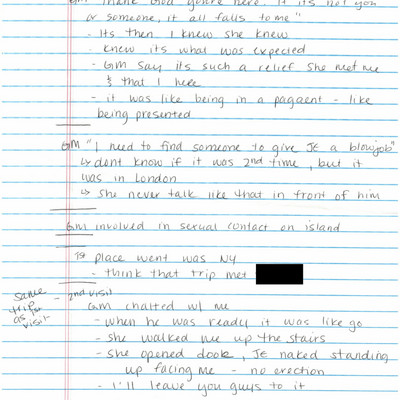 GM "Thank God you're here. If it's not you
or someone, it all falls to me"
- Its then I knew she knew
- knew its what was expected
- GM say its such a relief she met me
& that I here
- it was like being in a pagaent - like
being presented
GM "I need to find someone to give JE a blowjob"
↳ dont know if it was 2nd time, but it
was in London
↳ she never talk like that in front of him
GM involved in sexual contact on island
1st place went was NY
- think that trip met
same trip as 1st visit
- 2nd visit
GM chatted w/ me
- when he was ready it was like go
- she walked me up the stairs
- she opened door, JE naked standing
up facing me - no erection
- I'll leave you guys to it